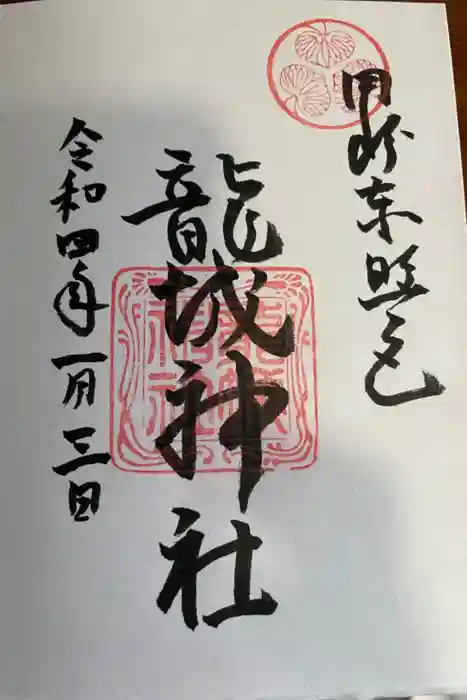 岡崎東照宮
龍城神社
龍城神社
令和四年一月三日